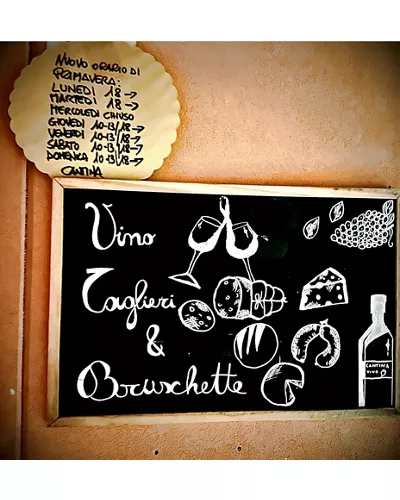 NUOVO ORARIO DI
PRIMAVERA:
LUNEDI 18→
MARTEDI 18→
MERCOLEDI CHIUSO
GIOVEDI 10-13/18→
VENERDI 10-13/18→
SABATO 10-13/18→
DOMENICA 10-13/18→
CANTINA
Vino
Taglieri
&
Bruschette
CANTINA
VINO